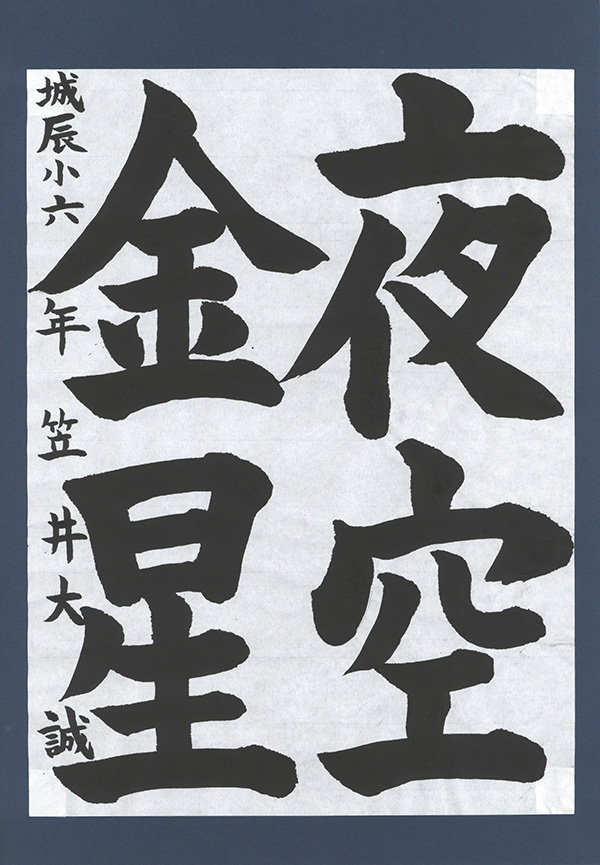 夜空
金星
城辰小六年 笠井大誠